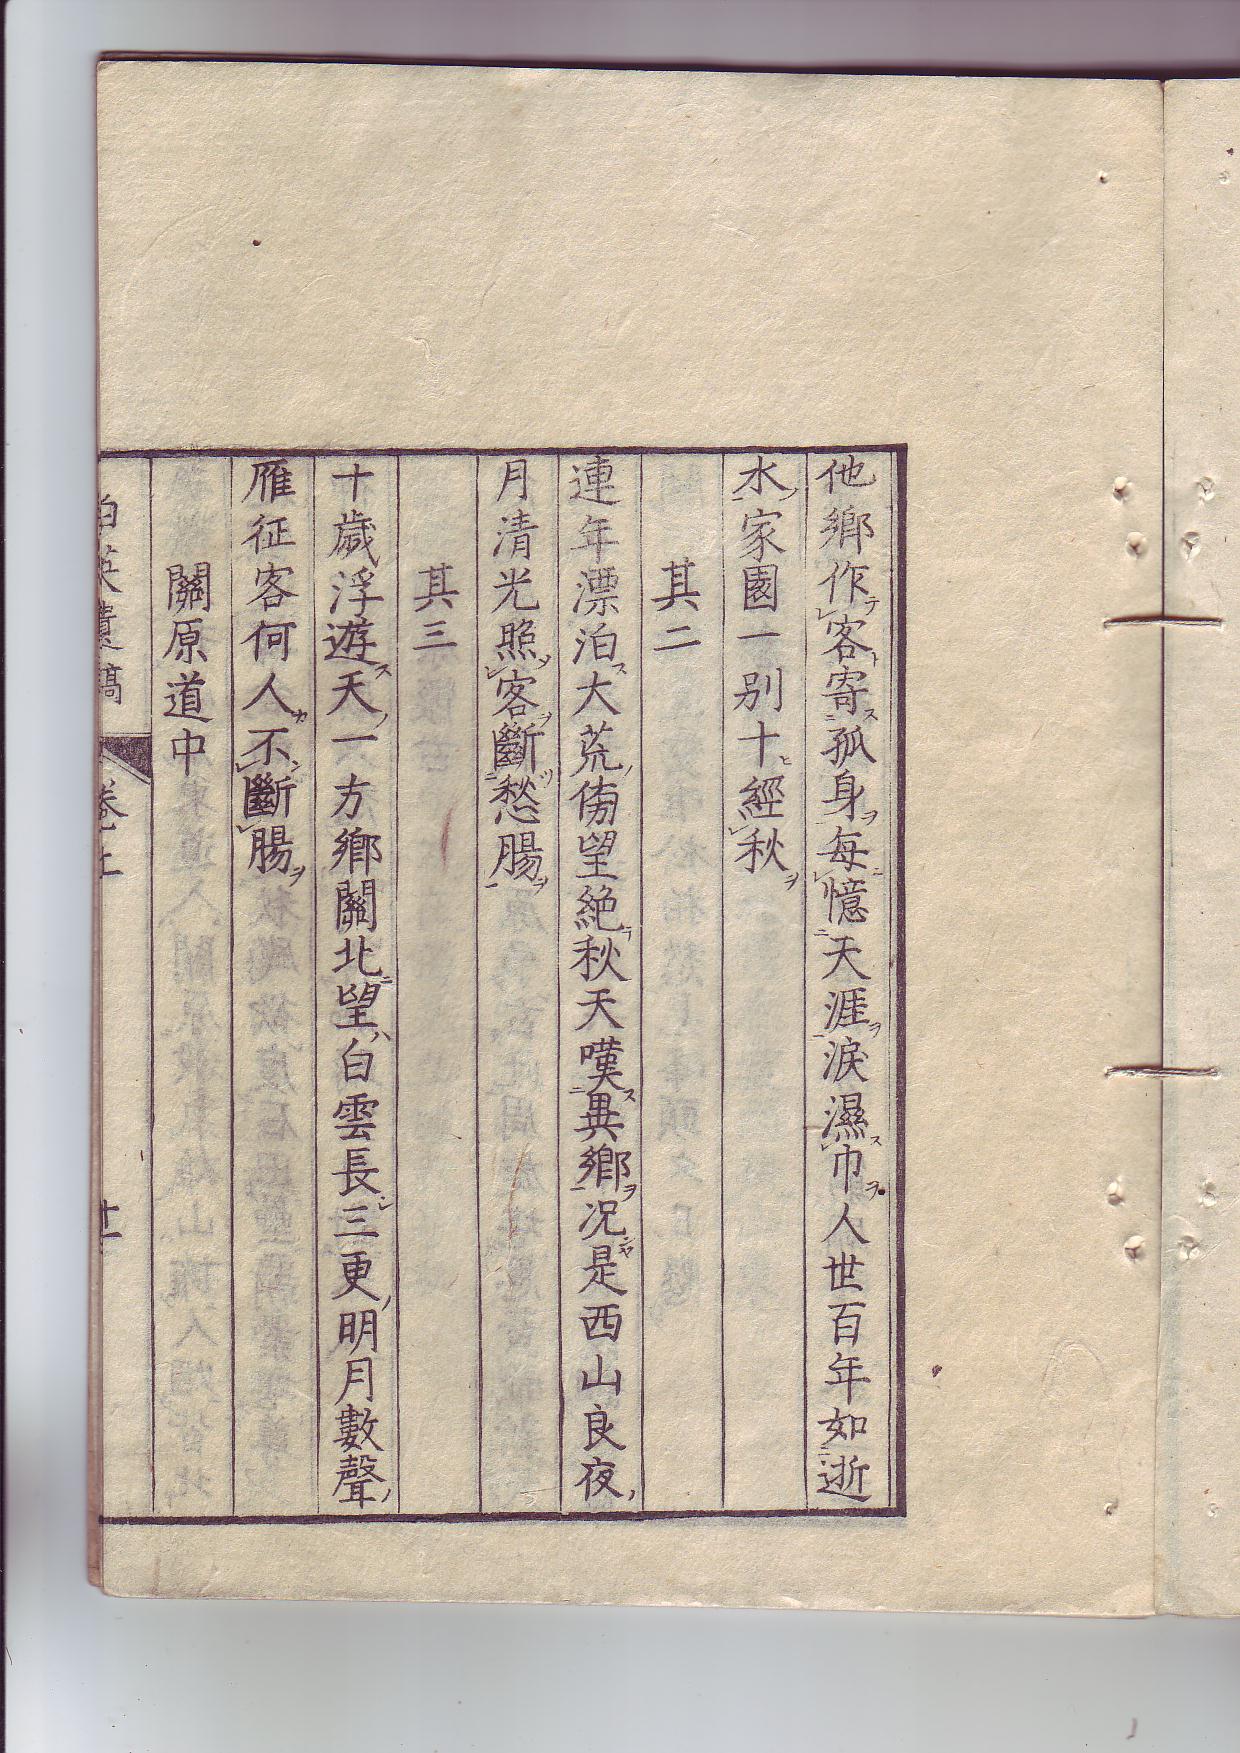 他鄉作客寄孤身每憶天涯淚濕巾人世百年如逝
水家園一別十經秋
其二
連年漂泊大荒傍望絶秋天嘆異鄉况是西山良夜
月清光照客斷愁腸
其三
十歲浮遊天一方鄉關北望白雲長三更明月數聲
雁征客何人不斷腸
關原道中
遺稿 卷上